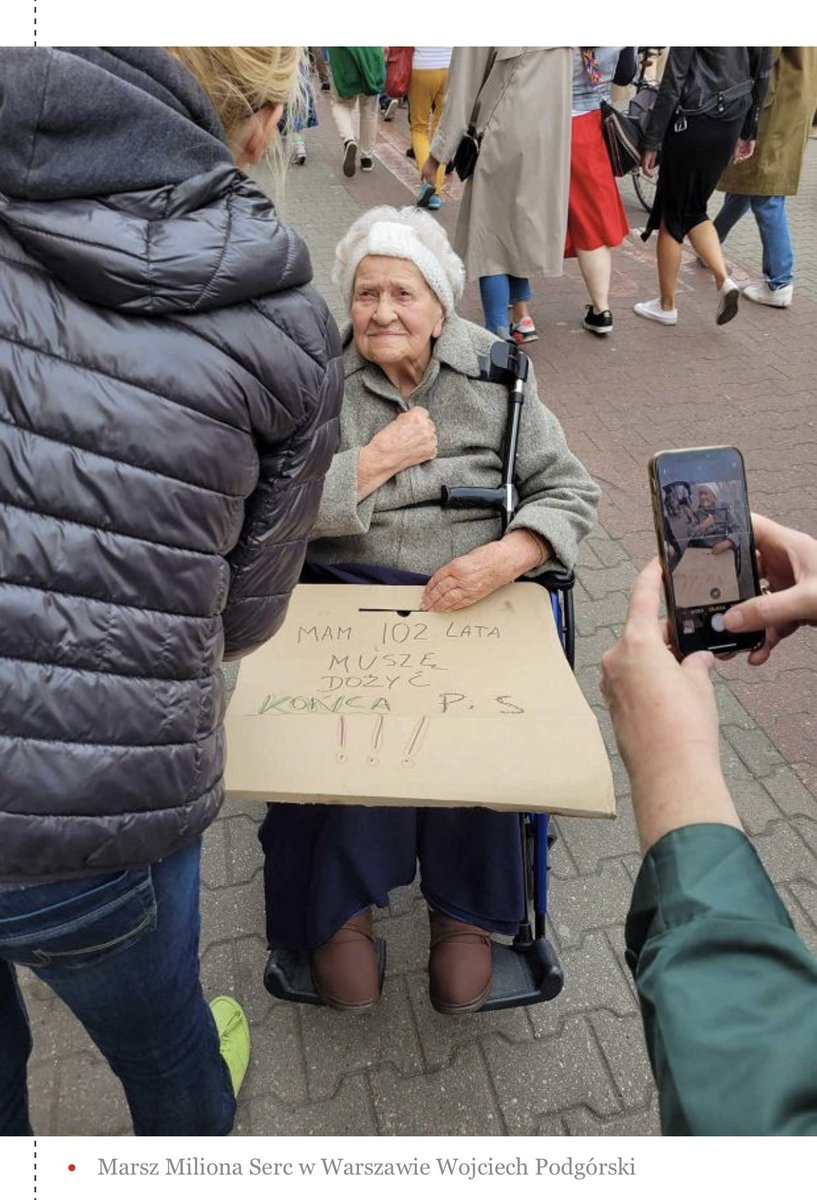 MAM 102 LATA
MUSZĘ
DOŻYĆ
KOŃCA PiS
!!!
Marsz Miliona Serc w Warszawie Wojciech Podgórski